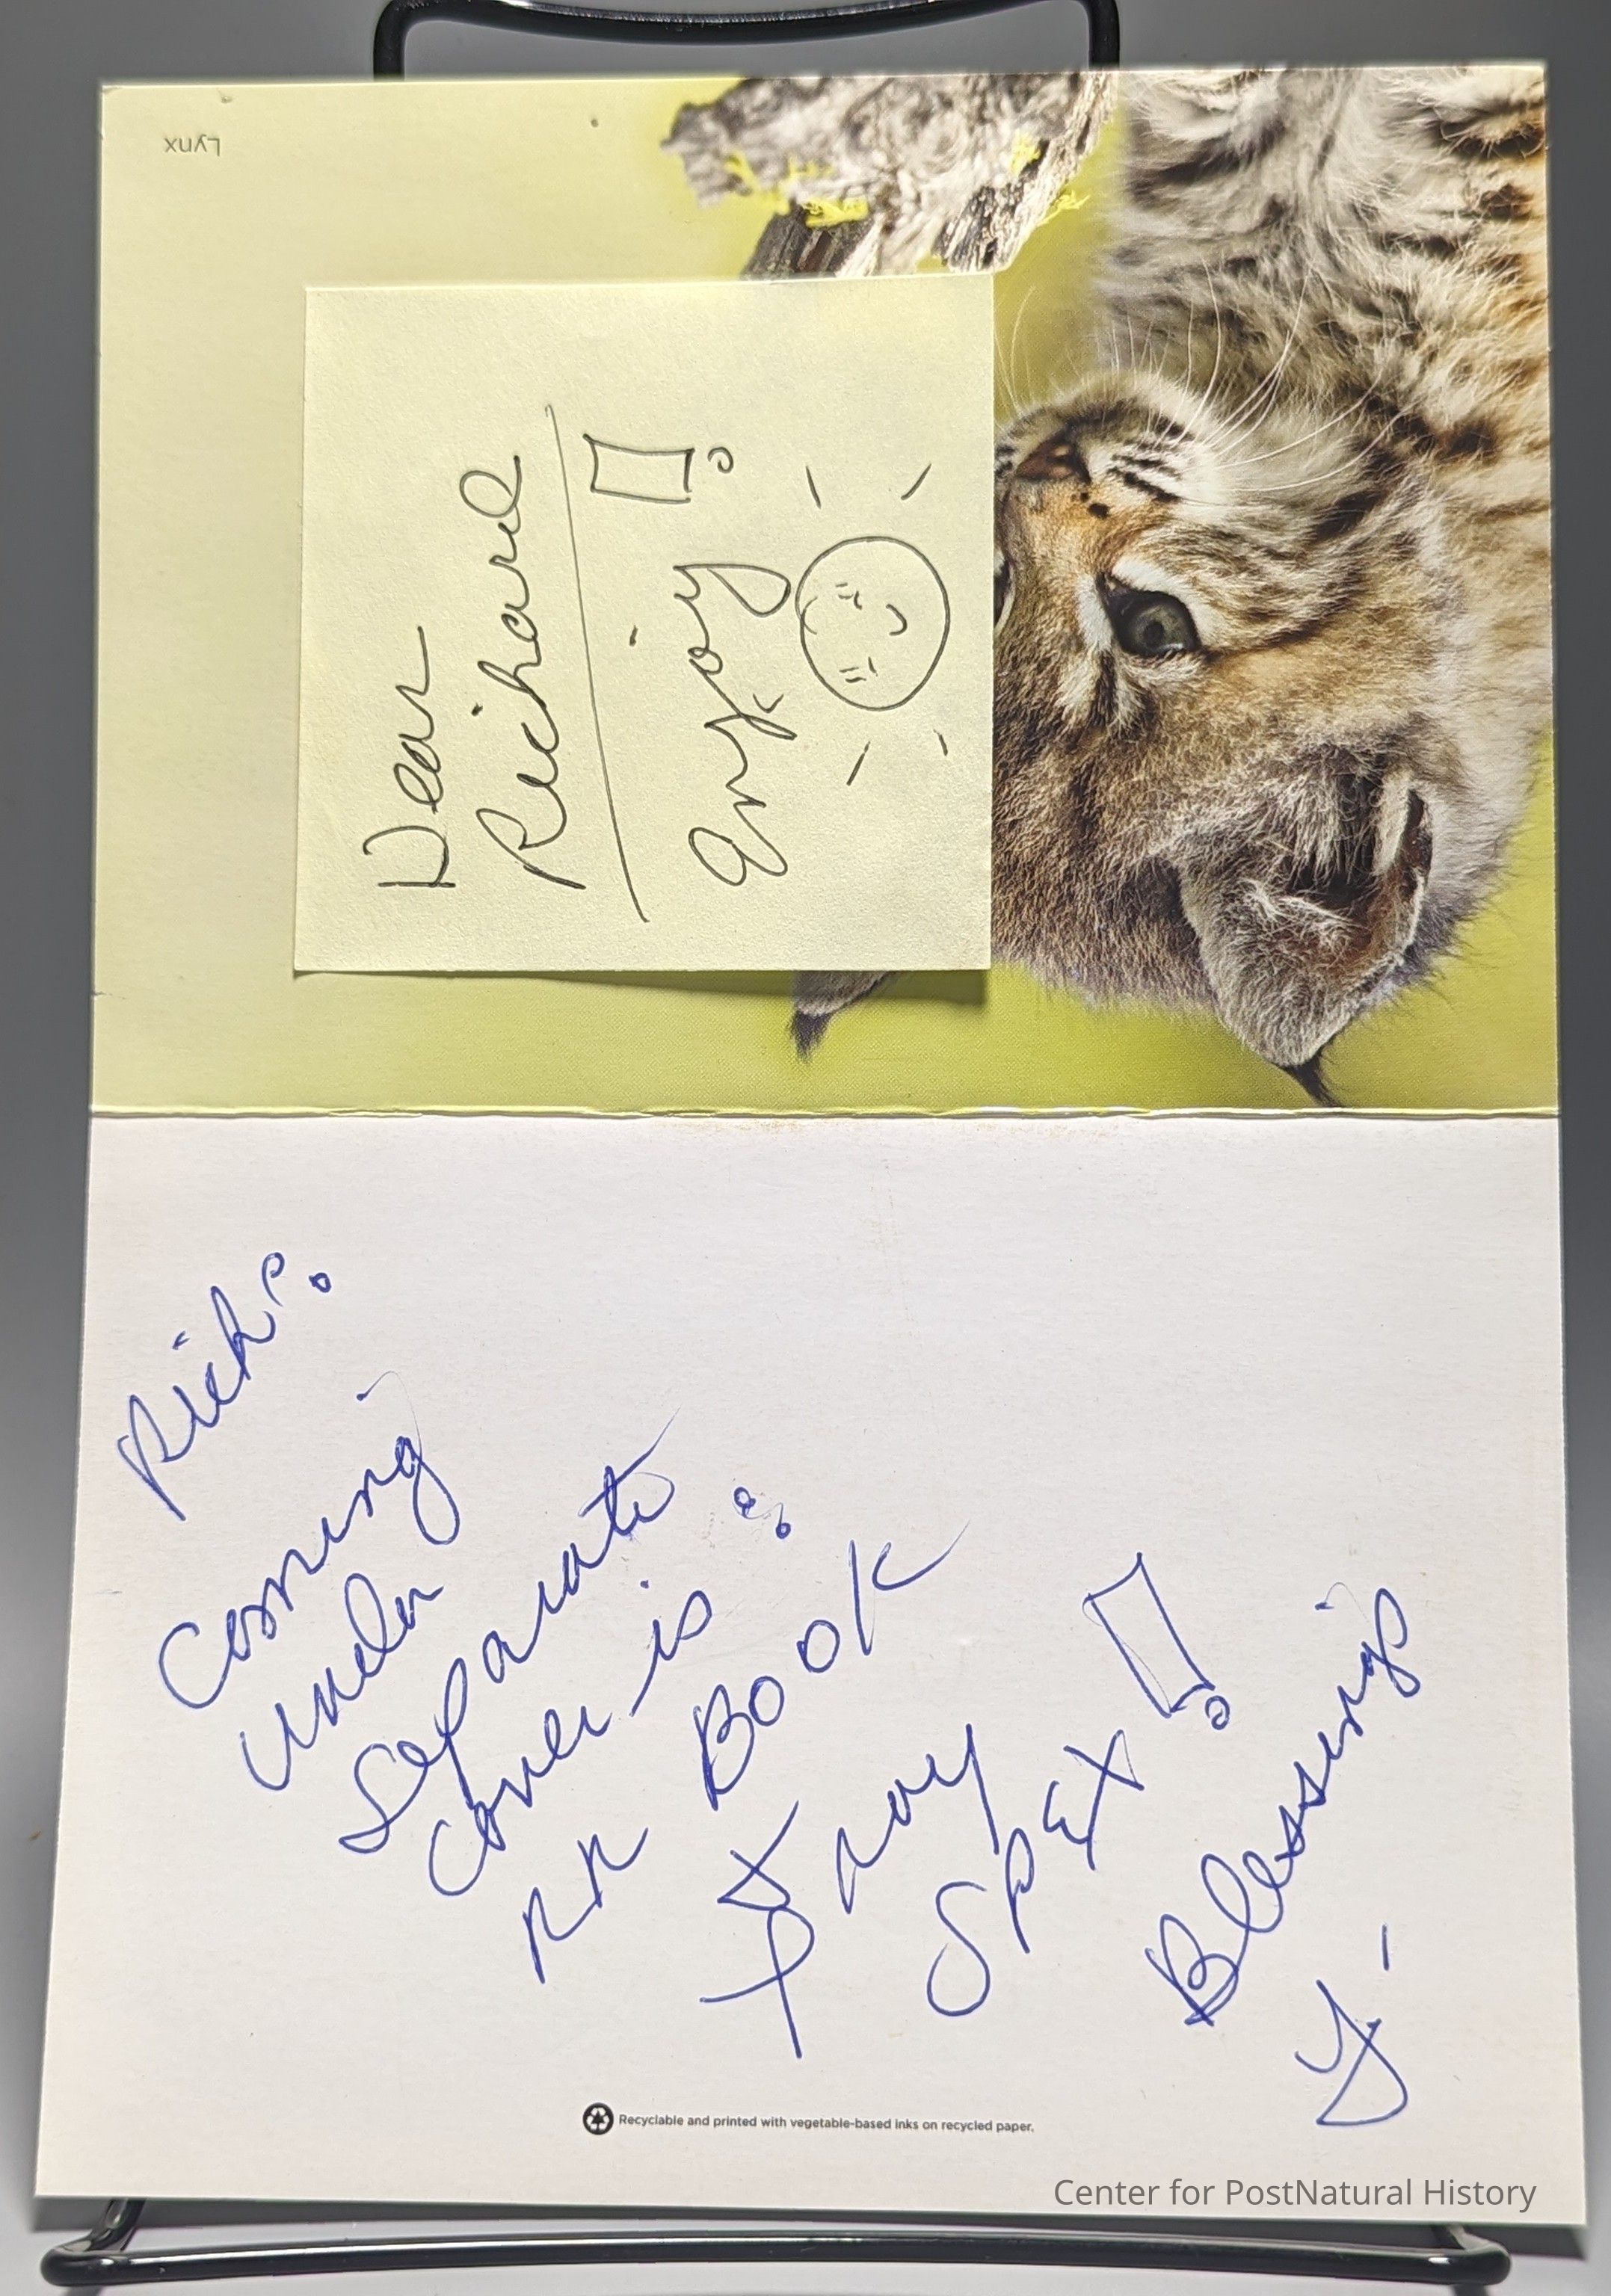 Lynx
Dear
Richard
Enjoy!
Rich:
Coming
under
Separate
cover is:
RR BOOK
& X-ray
SPEX!
Blessings
Y-
Recyclable and printed with vegetable-based inks on recycled paper.
Center for PostNatural History